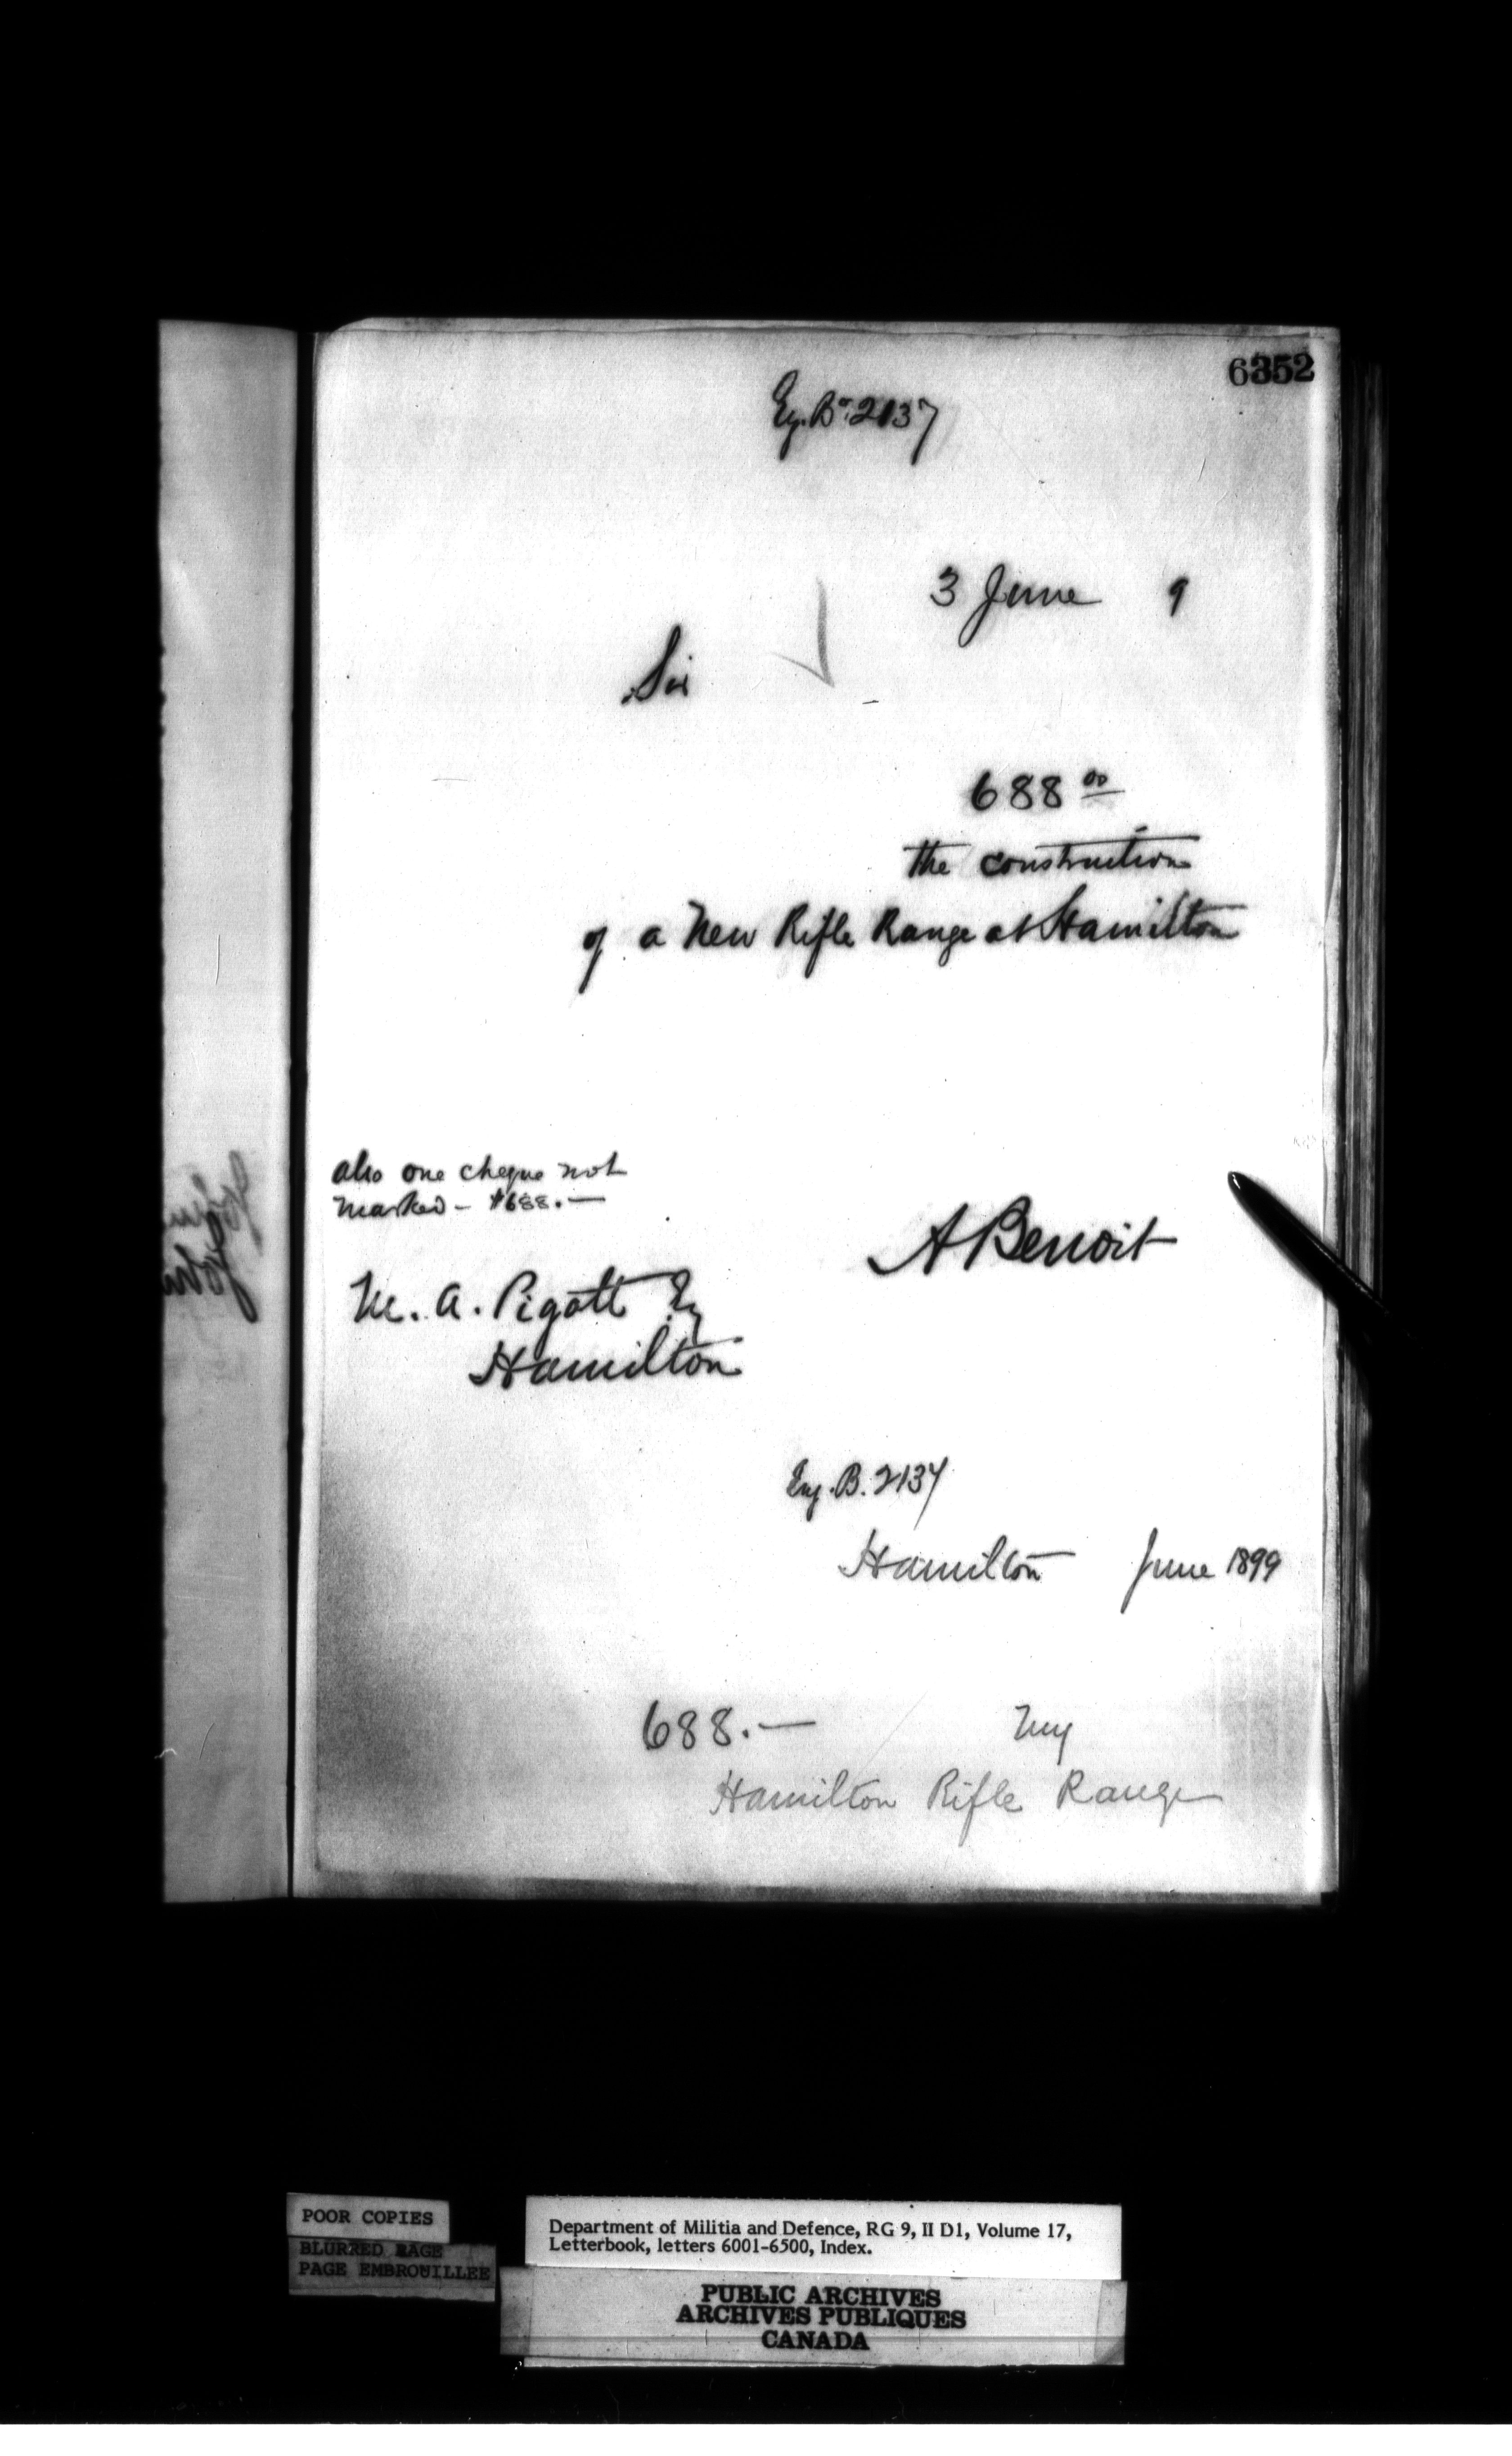 6352
Eng. Br. 2137
3 June 9
Sir
688 00
the construction
of a New Rifle Range at Hamilton
also one cheque not
marked - $688. —
A Benoit
M. A. Pigott Esq
Hamilton
Eng. B. 2137
Hamilton June 1899
688. — my
Hamilton Rifle Range
POOR COPIES
BLURRED PAGE
PAGE EMBROUILLEE
Department of Militia and Defence, RG 9, II D1, Volume 17,
Letterbook, letters 6001-6500, Index.
PUBLIC ARCHIVES
ARCHIVES PUBLIQUES
CANADA